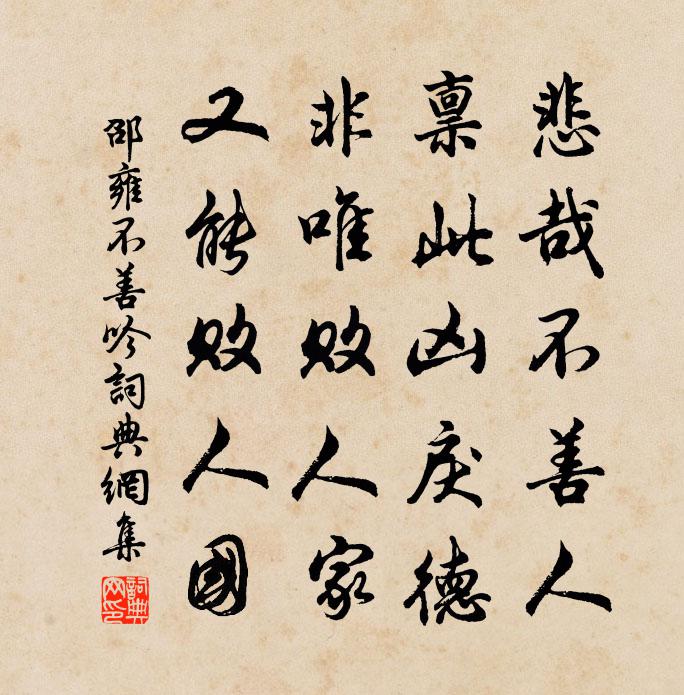 悲哉不善人
禀此凶戾德
非唯败人家
又能败人國
邵雍不善吟詞典網集
詞典网印